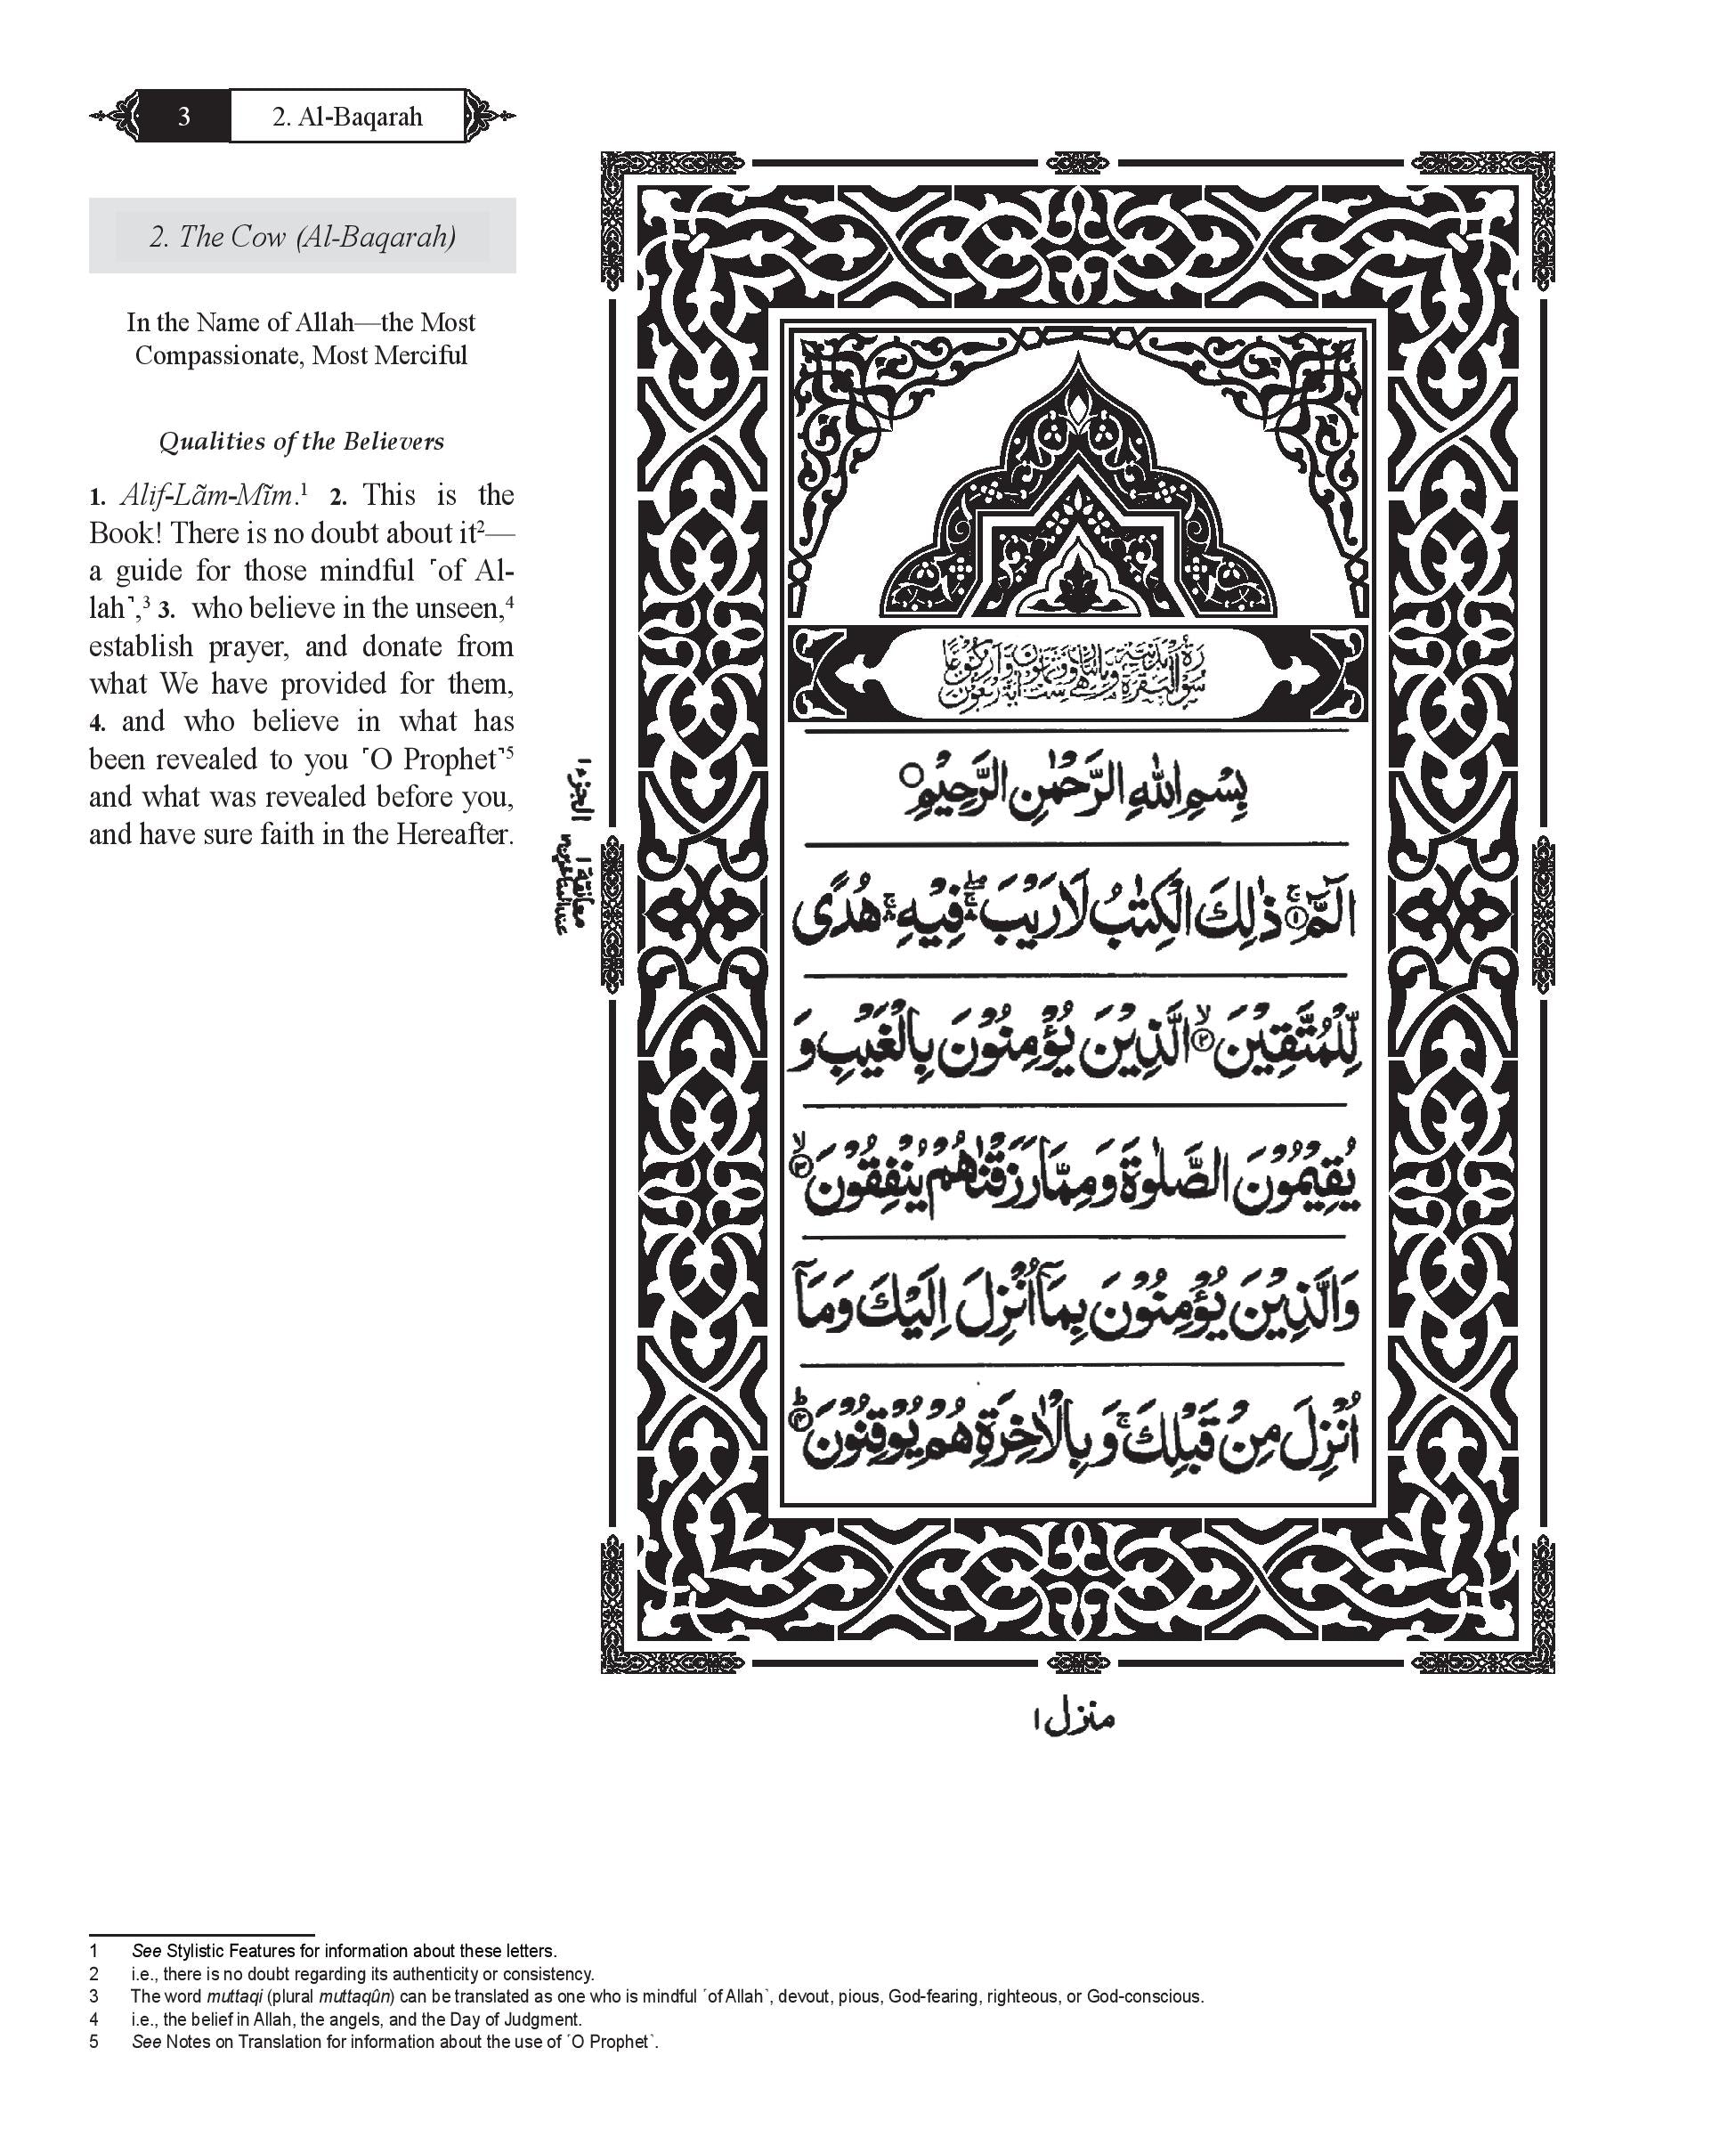 3 2. Al-Baqarah
2. The Cow (Al-Baqarah)
In the Name of Allah—the Most
Compassionate, Most Merciful
Qualities of the Believers
1. Alif-Lãm-Mĩm.¹ 2. This is the
Book! There is no doubt about it²—
a guide for those mindful ˹of Al-
lah˺,³ 3. who believe in the unseen,⁴
establish prayer, and donate from
what We have provided for them,
4. and who believe in what has
been revealed to you ˹O Prophet˺⁵
and what was revealed before you,
and have sure faith in the Hereafter.
بِسْمِ اللّٰهِ الرَّحْمٰنِ الرَّحِيْمِ
الٓمّٓ ۚ‏﴿۱﴾ ذٰلِكَ الْكِتٰبُ لَا رَيْبَ ۛۖ فِيْهِ ۛۚ هُدًى
لِّلْمُتَّقِيْنَ ۙ‏﴿۲﴾ الَّذِيْنَ يُؤْمِنُوْنَ بِالْغَيْبِ وَ
يُقِيْمُوْنَ الصَّلٰوةَ وَمِمَّا رَزَقْنٰهُمْ يُنْفِقُوْنَ ۙ‏﴿۳﴾
وَالَّذِيْنَ يُؤْمِنُوْنَ بِمَآ اُنْزِلَ اِلَيْكَ وَمَآ
اُنْزِلَ مِنْ قَبْلِكَ ۚ وَبِالْاٰخِرَةِ هُمْ يُوْقِنُوْنَ ؕ‏﴿۴﴾
الجزء ۱
معانقة ۱
منزل ۱
1 See Stylistic Features for information about these letters.
2 i.e., there is no doubt regarding its authenticity or consistency.
3 The word muttaqi (plural muttaqûn) can be translated as one who is mindful ˹of Allah˺, devout, pious, God-fearing, righteous, or God-conscious.
4 i.e., the belief in Allah, the angels, and the Day of Judgment.
5 See Notes on Translation for information about the use of ˹O Prophet˺.